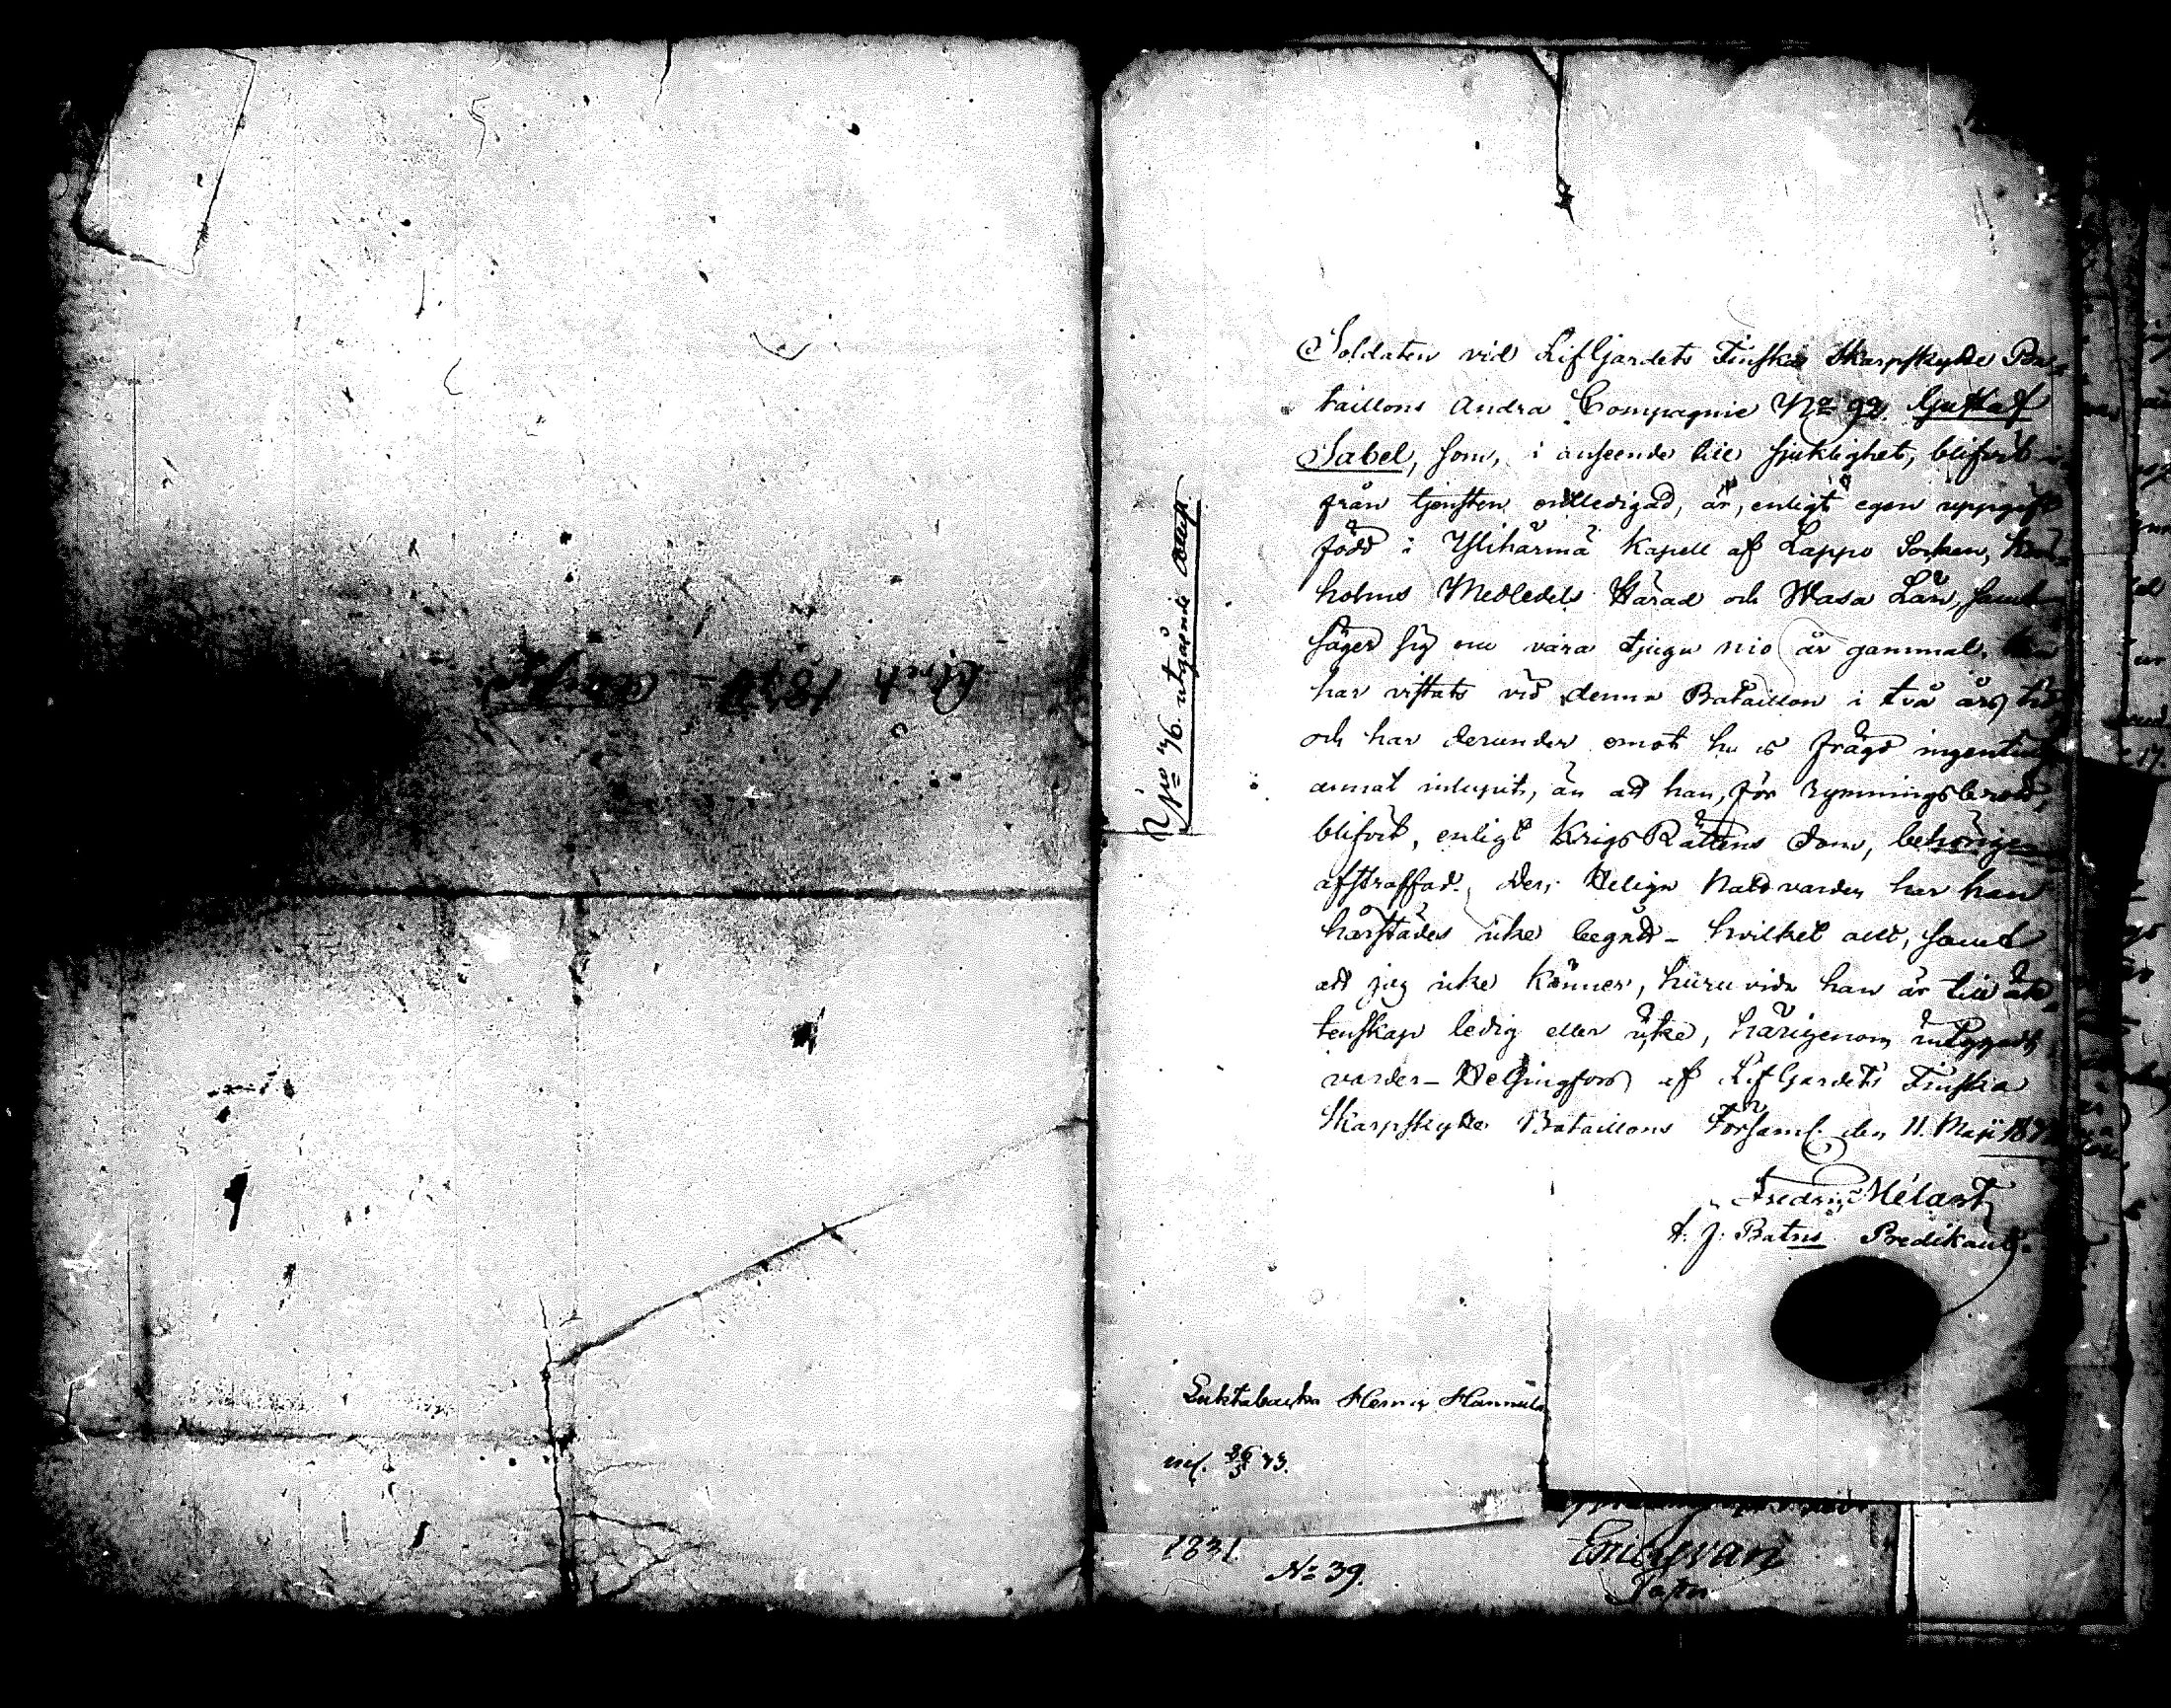 Året 1830
No 46. utgående Attest.
Soldaten vid LifGardets Finska Skarpskytte Ba-
taillons Andra Compagnie No 92 Gustaf
Sabel, som, i anseende till sjuklighet, blifvit
från tjensten entledigad, är, enligt egen uppgift
född i Ylihärmä Kapell af Lappo Socken,
holms Medledels Härad och Wasa Län, samt
säger sig nu vara tjugu nio år gammal. Han
har vistats vid denna Bataillon i två års tid
och har derunder emot hs fräjd ingenting
annat inlupit, än att han, för rymningsbrott,
blifvit, enligt Krigs Rättens Dom, behörigen
afstraffad. Den Heliga Nattvarden har han
härstädes icke begådt – hvilket allt, samt
att jag icke känner, huruvida han är till äk-
tenskap ledig eller icke, härigenom intygadt
varder – Helsingfors af LifGardets Finska
Skarpskytte Bataillons Församl. den 11. Maji
Fredric Mélart
t. j: Batns Predikant.
Henric Hannula
1831.
No 39.